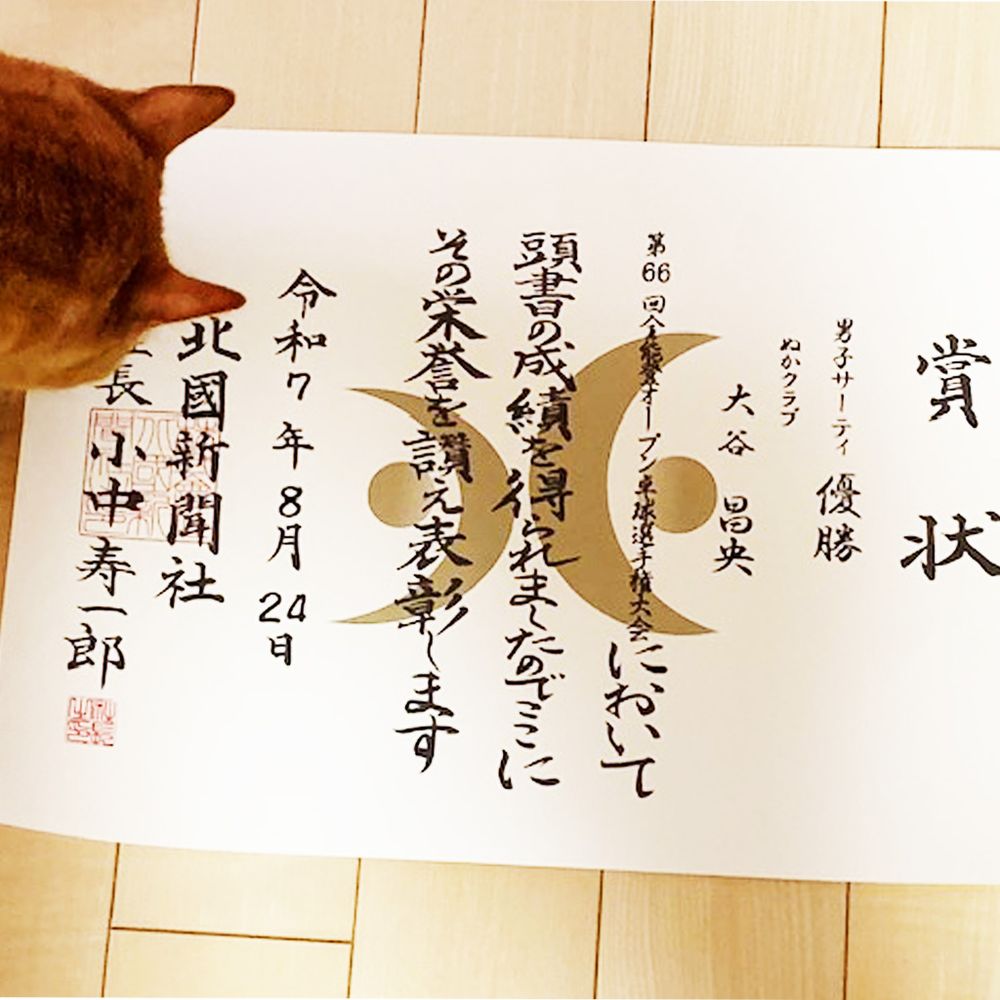 賞状
男子サーティ 優勝
ぬかクラブ
大谷 昌央
第66回全能登オープン卓球選手権大会において
頭書の成績を得られましたのでここに
その栄誉を讃え表彰します
令和7年8月24日
北國新聞社
長 小中寿一郎